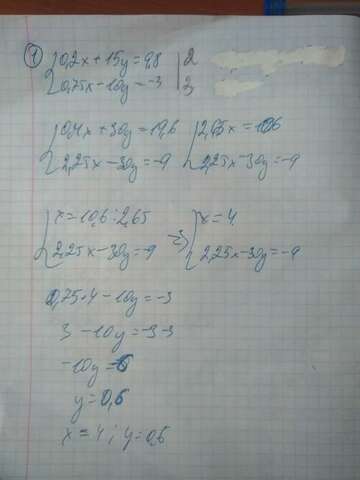 1) { 0,2x + 15y = 9,8 | 2
{ 0,75x - 10y = -3 | 3
{ 0,4x + 30y = 19,6 { 2,65x = 10,6
{ 2,25x - 30y = -9 { 2,25x - 30y = -9
{ x = 10,6 : 2,65 => { x = 4
{ 2,25x - 30y = -9 { 2,25x - 30y = -9
0,75 · 4 - 10y = -3
3 - 10y = -3 -3
-10y = -6
y = 0,6
x = 4 ; y = 0,6